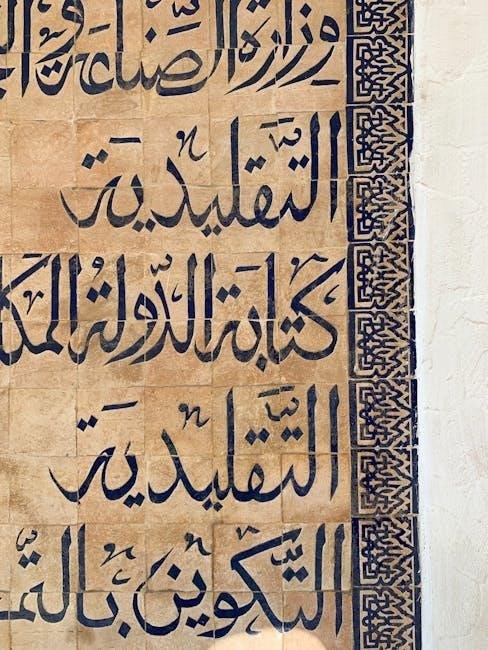 وزارة الصّناعة
التّقليديّة
كتابة الدّولة المكل
التّقليديّة
التّكوين بالتّم